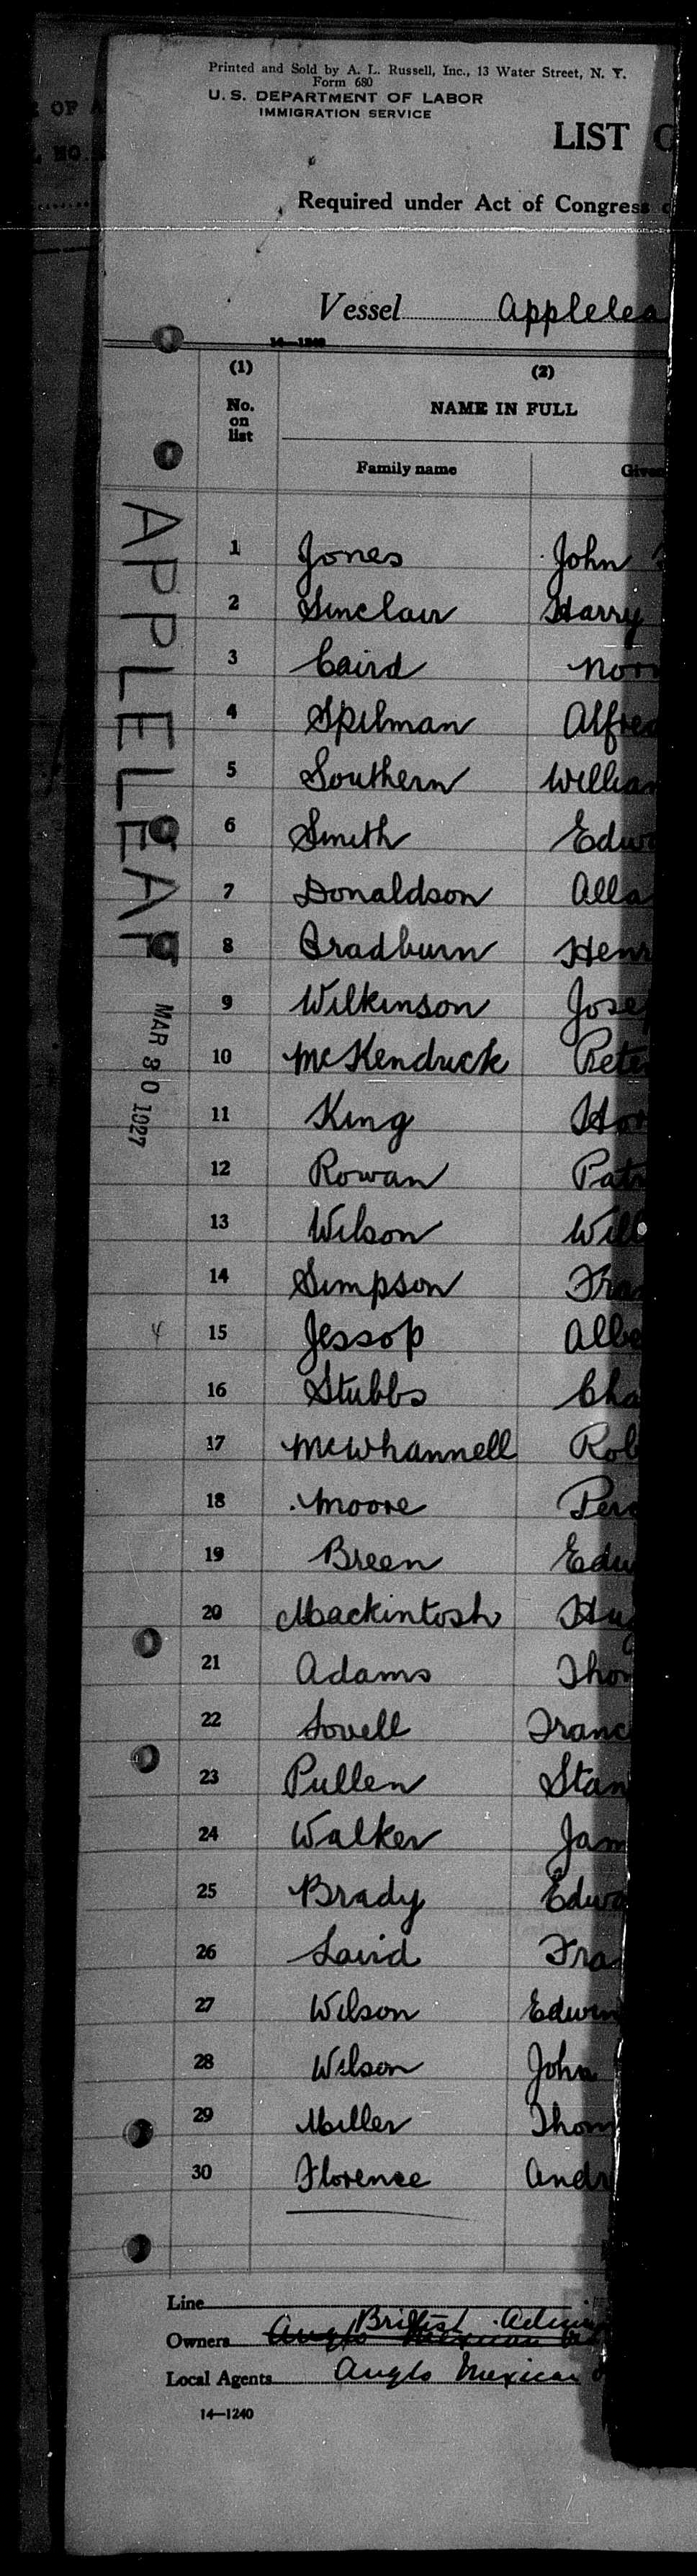 Printed and Sold by A. L. Russell, Inc., 13 Water Street, N. Y.
Form 680
U. S. DEPARTMENT OF LABOR
IMMIGRATION SERVICE
LIST
Required under Act of Congress
Vessel Applelea
14—1240
(1) (2)
No. on list
NAME IN FULL
Family name Given
APPLELEAF
MAR 30 1927
1 Jones John
2 Sinclair Harry
3 Caird Nor
4 Spilman Alfred
5 Southern William
6 Smith Edw
7 Donaldson Alla
8 Bradburn Henr
9 Wilkinson Jose
10 McKendrick Pete
11 King Hor
12 Rowan Pat
13 Wilson Will
14 Simpson Fra
4 15 Jessop Albe
16 Stubbs Cha
17 McWhannell Rob
18 Moore Perc
19 Breen Edw
20 Mackintosh Hug
21 Adams Thom
22 Lovell Franc
23 Pullen Stan
24 Walker Jam
25 Brady Edwa
26 Laird Fra
27 Wilson Edwin
28 Wilson John
29 Miller Thom
30 Florence Andr
Line
British
Owners Anglo Mexican
Local Agents Anglo Mexican
14—1240